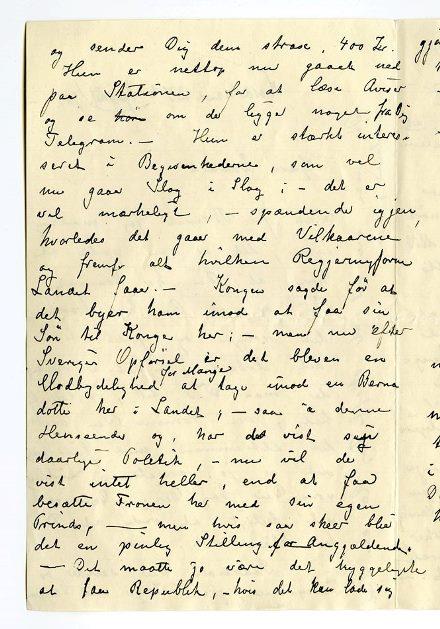 og sender Dig dem strax, 400 Kr.
Hun er nettop nu gaaet ned
paa Stationen, for at læse Aviser
og se om der ligger noget fra Dig
Telegram. — Hun er stærkt interes-
seret i Begivenhederne, som vel
nu gaar Slag i Slag; — det er
vel mærkeligt, — spændende igjen,
hvorledes det gaar med Vilkaarene
og fremfr alt hvilken Reggeringsform
Landet faar. — Kongen sagde før at
det byer ham imod at faa sin
Søn til Konge her; — men nu efter
Sveriges Opførsel er det bleven en
for Mange
Modbydelighed at tage imod en Berna
dotte her i Landet; — saa i denne
Henseende og, har det vist sig
daarlig Politik, — nu vil de
vist intet heller, end at faa
besætte Tronen her med sin egen
Prinds, — men hvis saa skeer blir
det en pinlig Stilling for Angjældende.
— Det maatte jo være det hyggeligste
at faae Republik, — hvis det kan lade sig